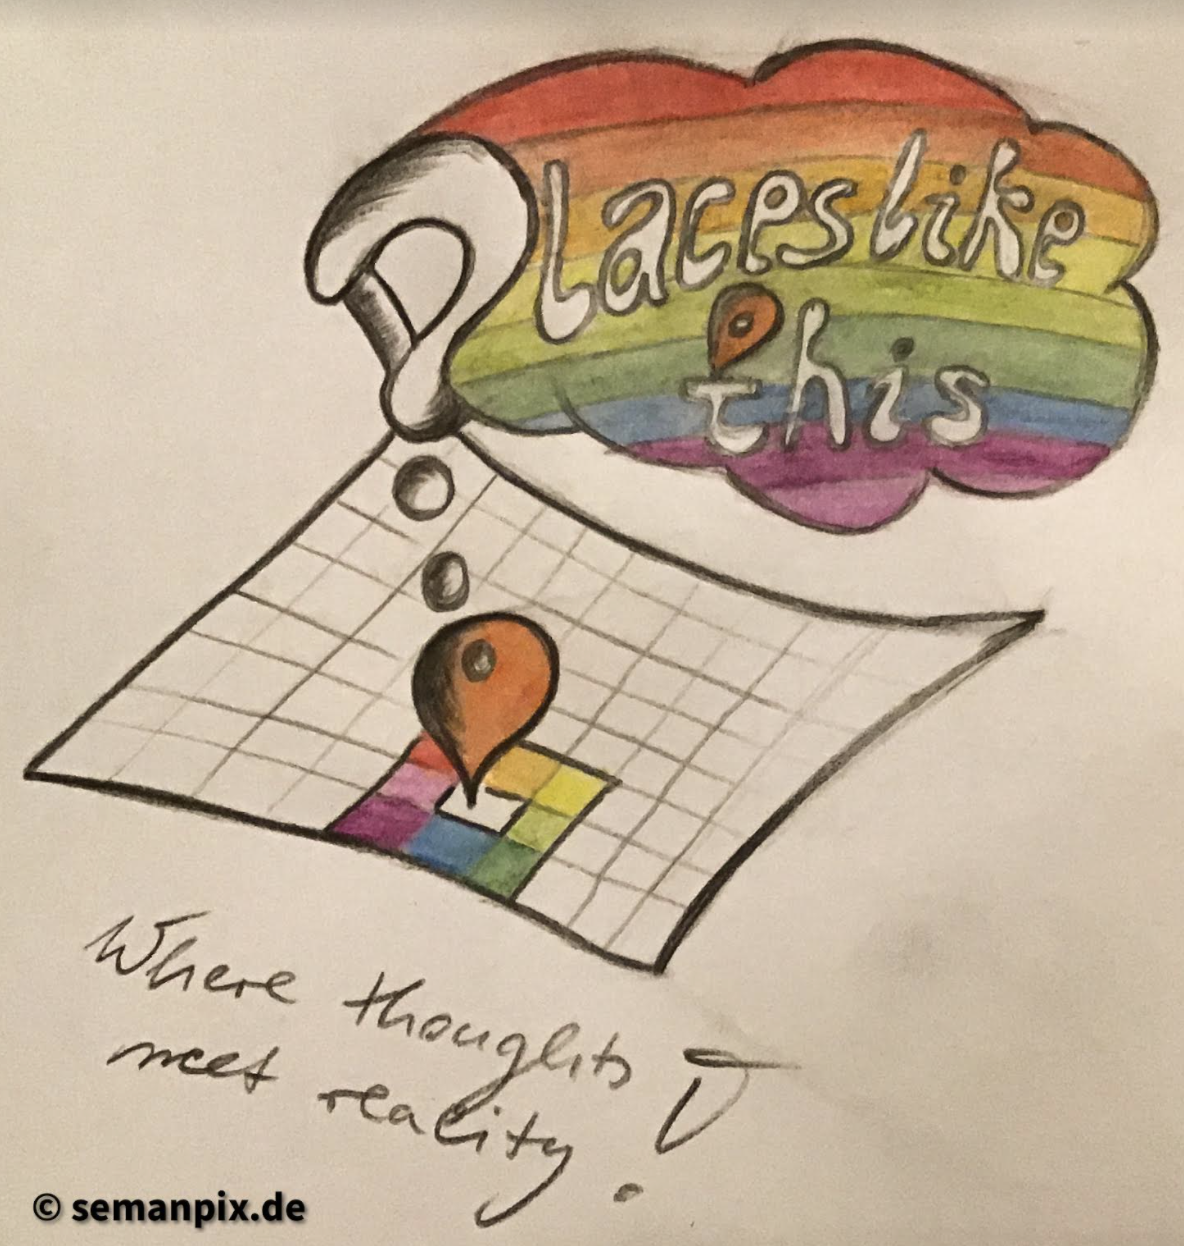 Places like
this
Where thoughts
meet reality!
© semanpix.de